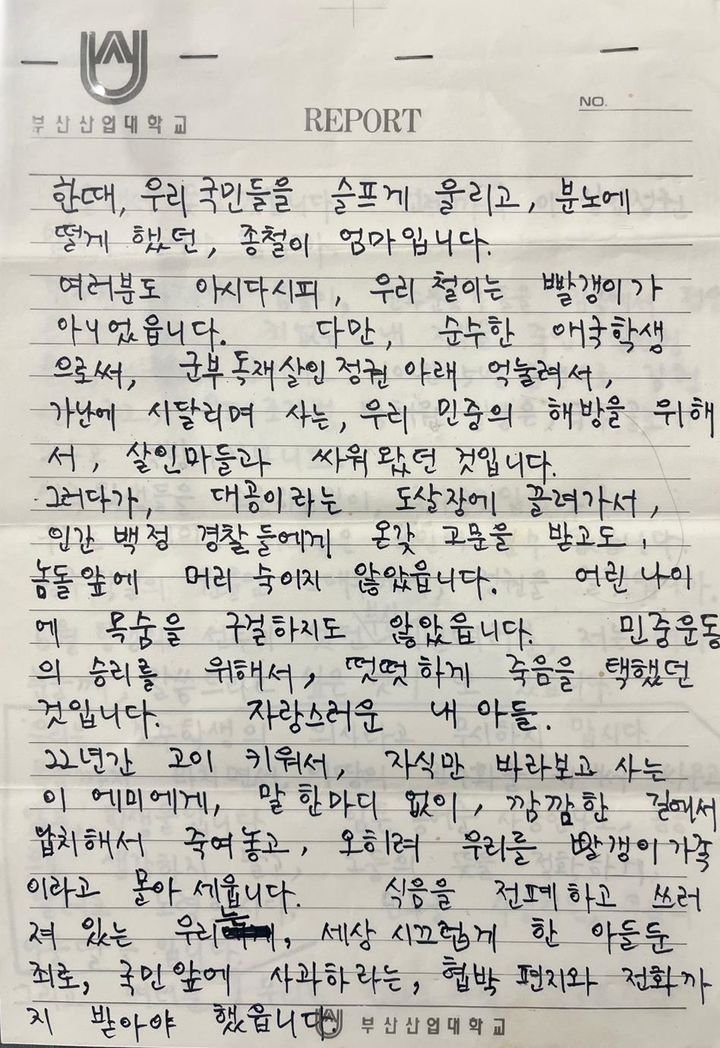 부산산업대학교
REPORT
NO.
한때, 우리 국민들을 슬프게 울리고, 분노에
떨게 했던, 종철이 엄마입니다.
여러분도 아시다시피, 우리 철이는 빨갱이가
아니었읍니다. 다만, 순수한 애국학생
으로써, 군부독재살인정권 아래 억눌려서,
가난에 시달리며 사는, 우리 민중의 해방을 위해
서, 살인마들과 싸워 왔던 것입니다.
그러다가, 대공이라는 도살장에 끌려가서,
인간 백정 경찰들에게 온갖 고문을 받고도,
놈들앞에 머리 숙이지 않았읍니다. 어린 나이
에 목숨을 구걸하지도 않았읍니다. 민중운동
의 승리를 위해서, 떳떳하게 죽음을 택했던
것입니다. 자랑스러운 내 아들.
22년간 고이 키워서, 자식만 바라보고 사는
이 에미에게, 말 한마디 없이, 깜깜한 길에서
납치해서 죽여놓고, 오히려 우리를 빨갱이 가족
이라고 몰아 세웁니다. 식음을 전폐하고 쓰러
져 있는 우리는, 세상 시끄럽게 한 아들 둔
죄로, 국민앞에 사과하라는, 협박 편지와 전화까
지 받아야 했읍니다.
부산산업대학교